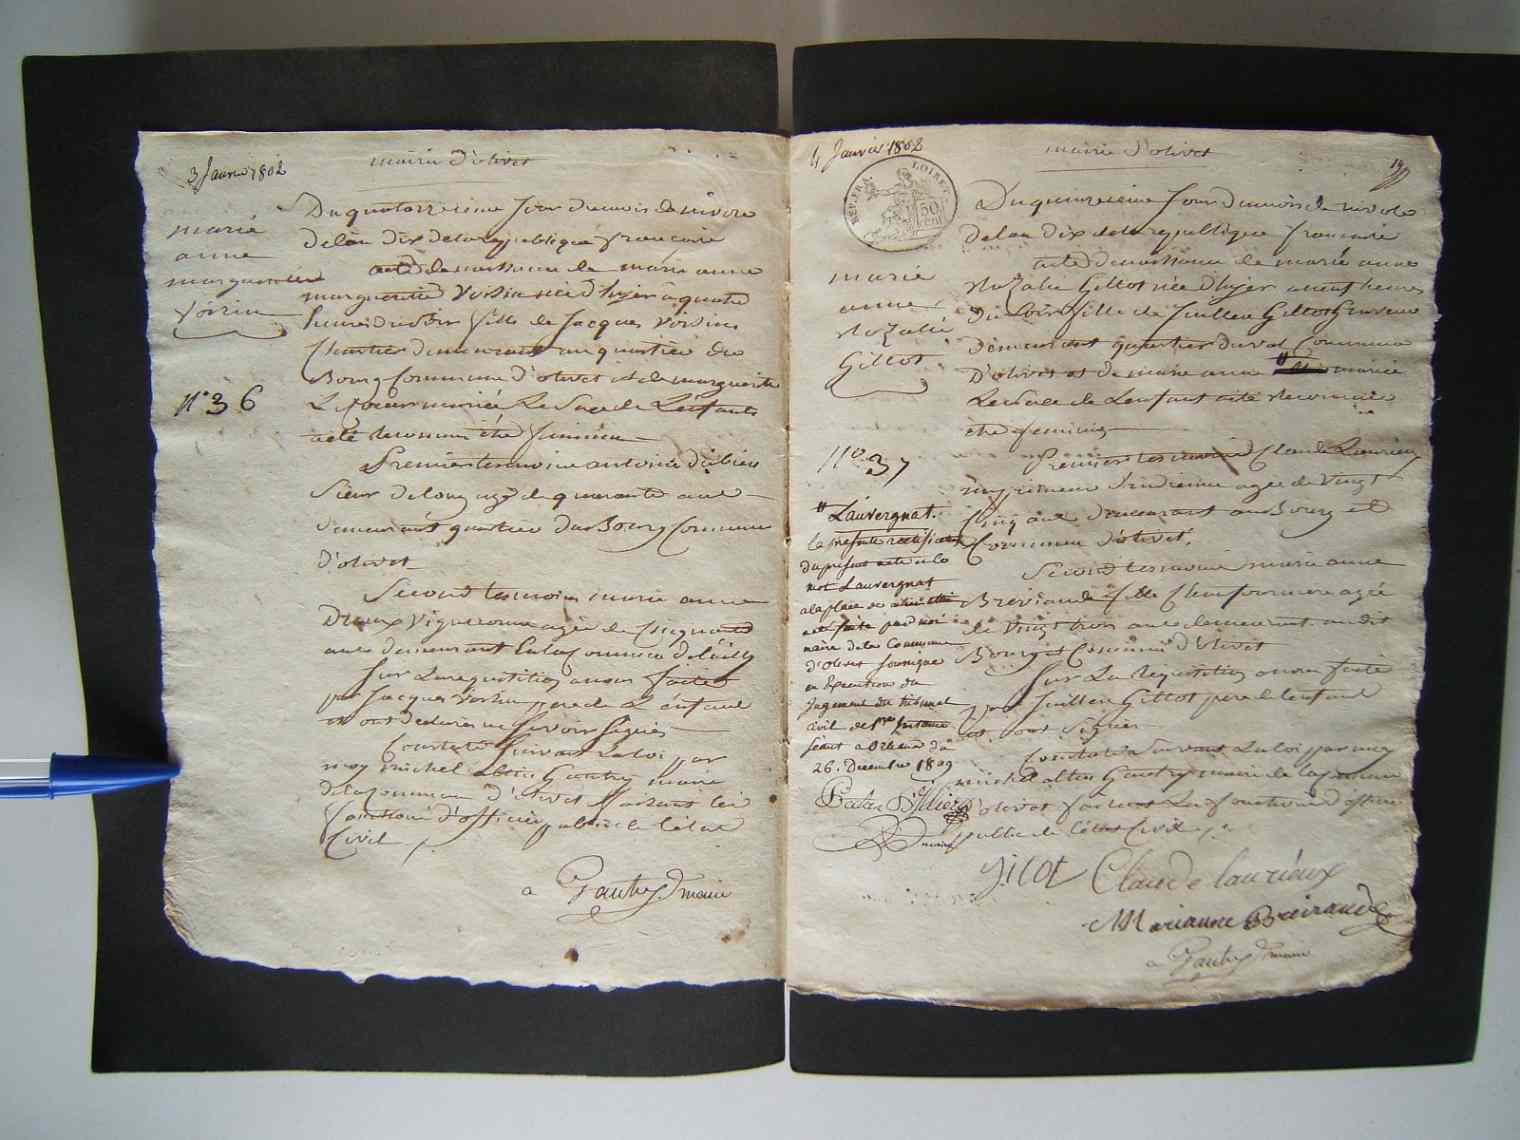 3 Janvier 1802
mairie d'olivet
marie
anne
margueritte
Voisin
N° 36
Du quatorzieme Jour du mois de nivose
de lan dix de la republique francaise
acte de naissance de marie anne
margueritte Voisin née d'hyer à quatre
heures du soir fille de Jacques Voisin
Chartier demeurant au quartier du
Bourg Commune d'olivet et de margueritte
mariée Le Sexe de L'enfant
a été reconnu être feminin
Premier temoin antoine
Sieur de long agé de quarante ans
demeurant quartier du Bourg Commune
d'olivet
Second temoin marie anne
Vigneronne agée de Cinquante
ans demeurant En la Commune
Sur La requisition a nous faite
par Jacques Voisin pere de L'enfant
et ont declarés ne Savoir Signés
Constaté Suivant La loi par
moy michel Gautry maire
de la Commune d'olivet faisant les
fonctions d'officier public de l'état
Civil
a Gautry maire
4 Janvier 1802
mairie d'olivet
19
REP. FRA. LOIRET
50 CENT
marie
anne
Rozalie
Gillot
N° 37
Du quinzieme Jour du mois de nivose
de lan dix de la republique francaise
acte de naissance de marie anne
Rozalie Gillot née d'hyer a neuf heures
du Soir fille de Jullien Gillot Graveur
demeurant quartier du val Commune
D'olivet et de marie anne mariée
Le Sexe de L'enfant a été reconnu
être feminin
Premier temoin Claude Laurieux
imprimeur d'indienne agé de vingt
Cinq ans demeurant au Bourg et
Commune d'olivet.
Second temoin marie anne
fille agée
de vingt trois ans demeurant au dit
Bourg et Commune d'Olivet
Sur La requisition a nous faite
par Jullien Gillot pere de l'enfant
et ont Signés
Constaté Suivant La loi par moy
michel Gautry maire de la Commune
d'olivet faisant Les fonctions d'officier
public de l'état Civil
Lauvergnat.
la presente rectification
du present acte
mot Lauvergnat
a la place de
faite par moi
maire de la Commune
d'Olivet
en Execution du
Jugement du tribunal
civil de 1re Instance
séant a Orleans du
26. Decembre 1809
maire
Gilot Claude laurieux
Marianne
a Gautry maire